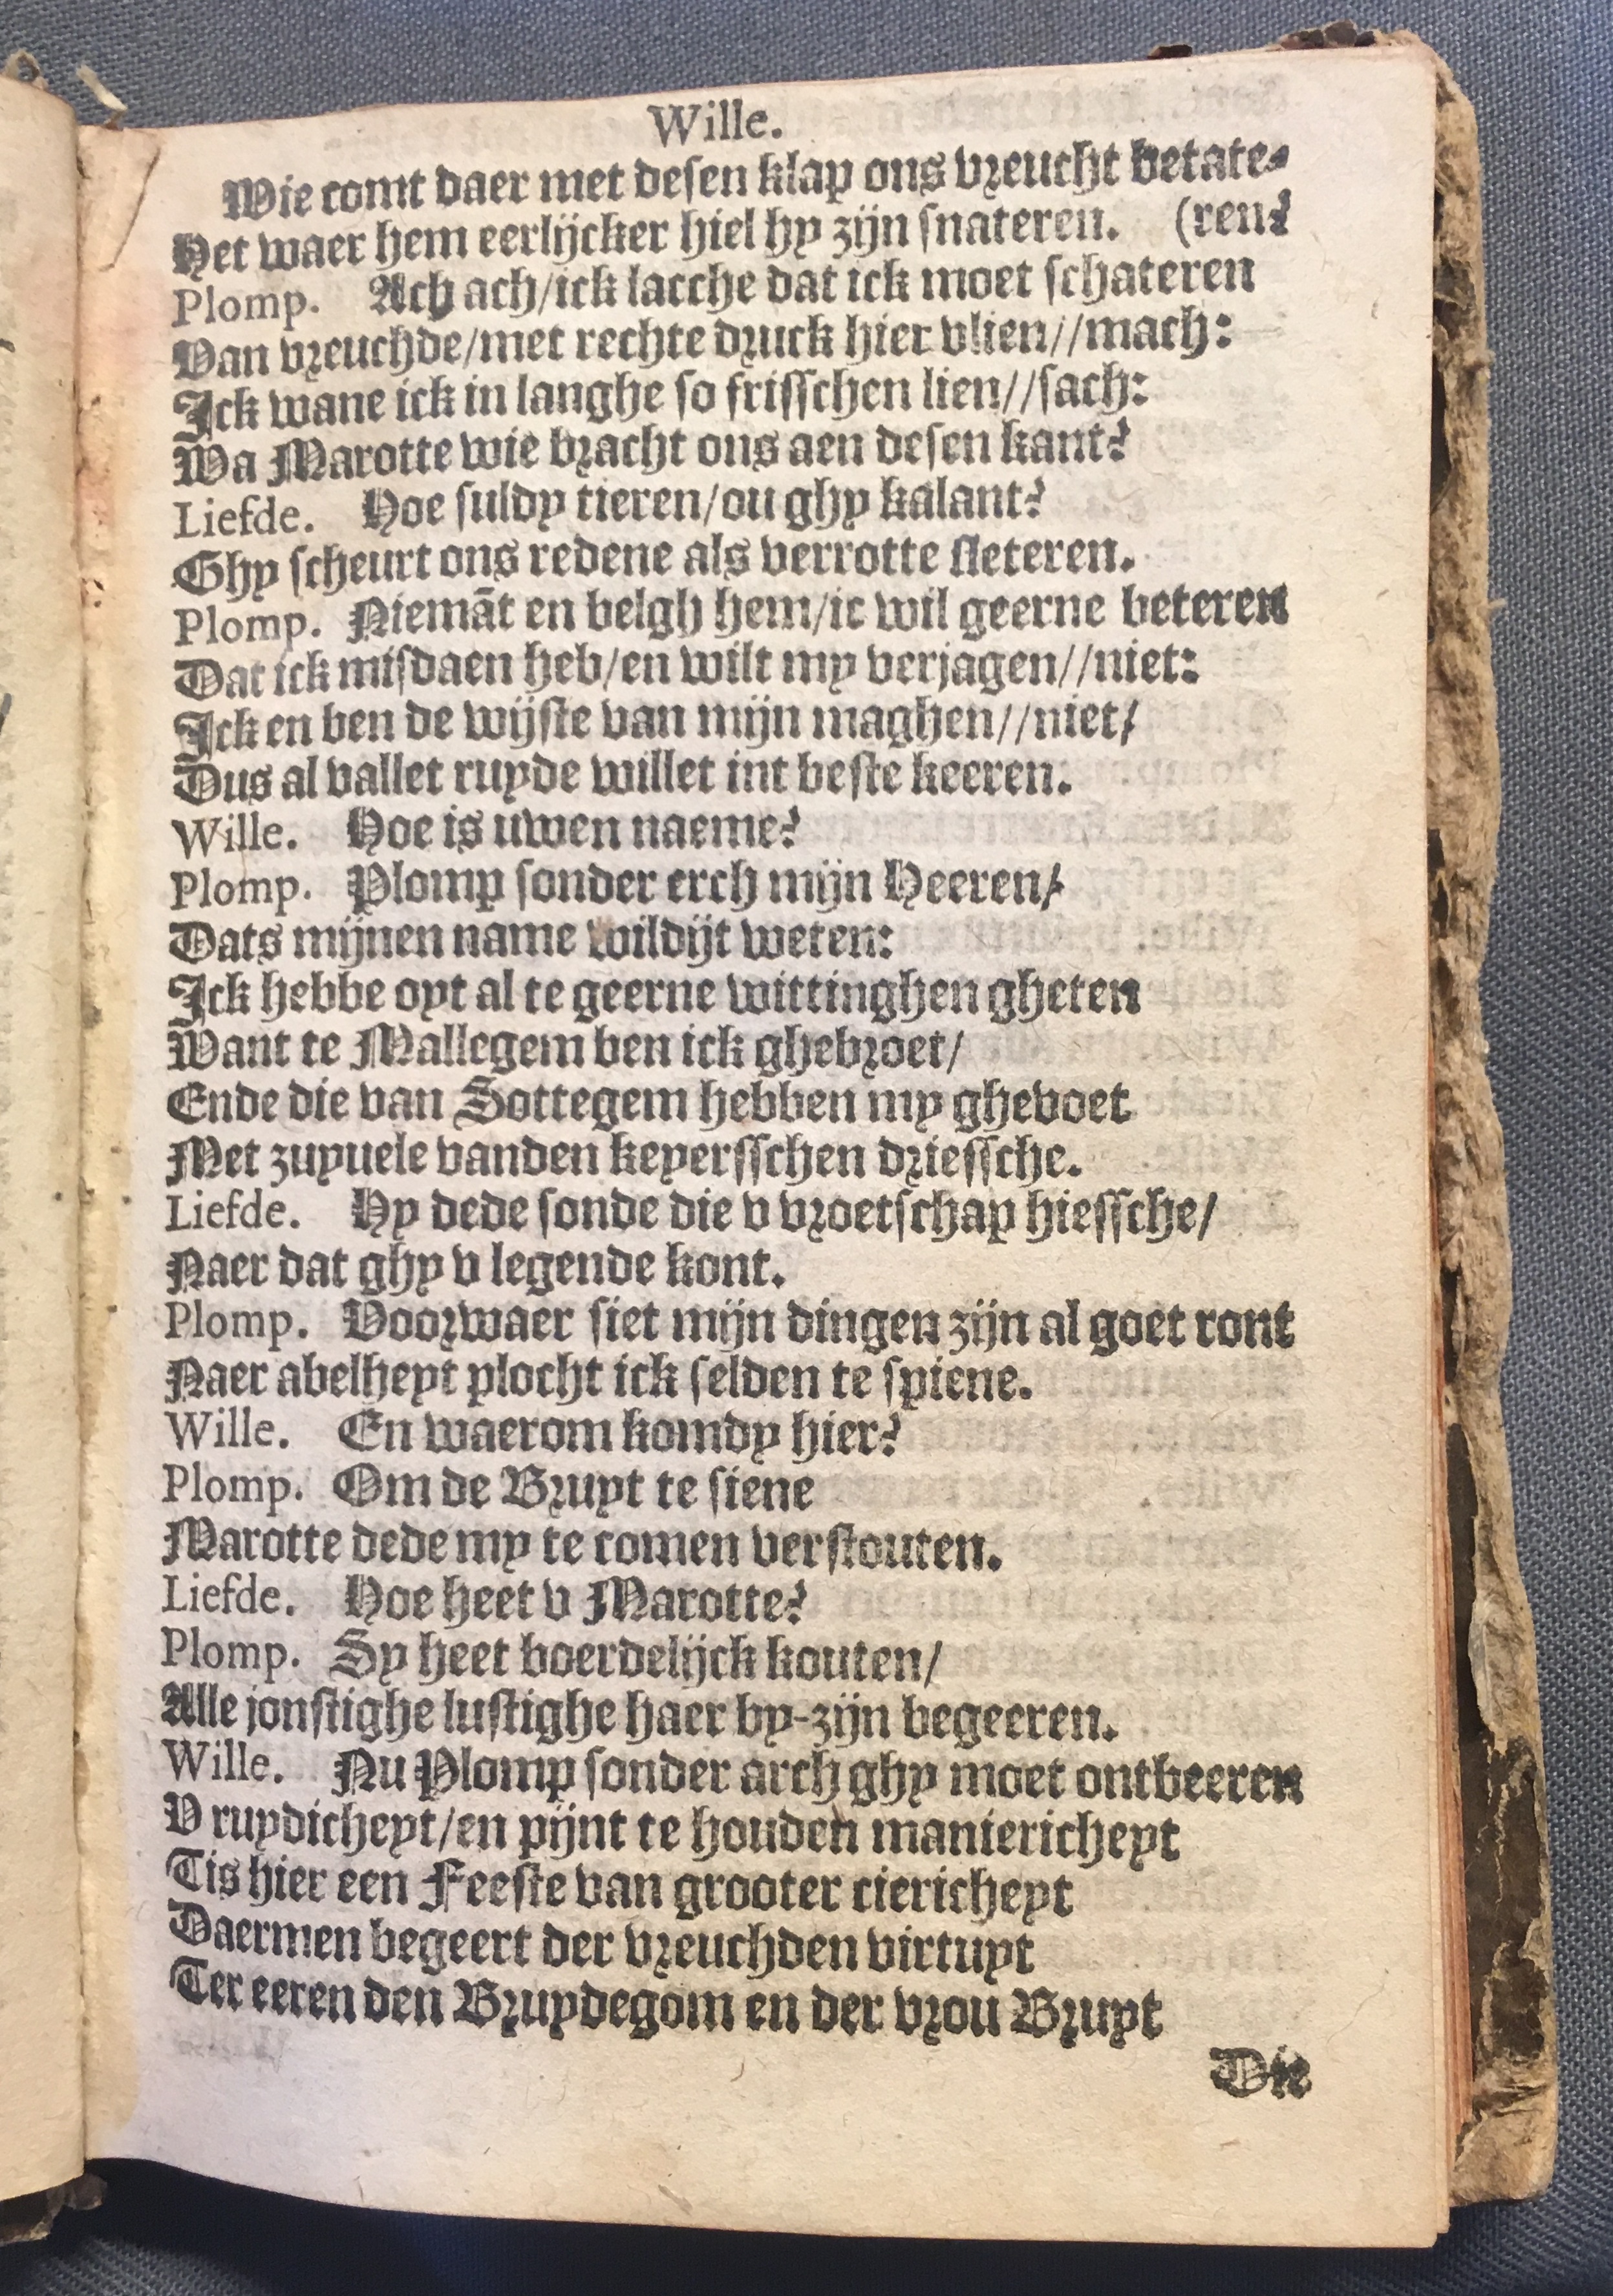 Wille.
Wie comt daer met desen klap ons vreucht betate-
Het waer hem eerlijcker hiel hy zijn snateren. (ren?
Plomp. Ach ach/ick lacche dat ick moet schateren
Van vreuchde/met rechte druck hier vlien//mach:
Ick wane ick in langhe so frisschen lien//sach:
Wa Marotte wie bracht ons aen desen kant?
Liefde. Hoe suldy tieren/ou ghy kalant?
Ghy scheurt ons redene als verrotte sleteren.
Plomp. Niemāt en belgh hem/ic wil geerne beteren
Dat ick misdaen heb/en wilt my verjagen//niet:
Ick en ben de wijste van mijn maghen//niet/
Dus al vallet ruyde willet int beste keeren.
Wille. Hoe is uwen naeme?
Plomp. Plomp sonder erch mijn Heeren/
Dats mijnen name wildijt weten:
Ick hebbe oyt al te geerne wittinghen gheten
Want te Mallegem ben ick ghebroet/
Ende die van Sottegem hebben my ghevoet
Met zuyuele vanden keyersschen driessche.
Liefde. Hy dede sonde die v vroetschap hiessche/
Naer dat ghy v legende kont.
Plomp. Voorwaer siet mijn dingen zijn al goet ront
Naer abelheyt plocht ick selden te spiene.
Wille. En waerom komdy hier?
Plomp. Om de Bruyt te siene
Marotte dede my te comen verstouten.
Liefde. Hoe heet v Marotte?
Plomp. Sy heet boerdelijck kouten/
Alle jonstighe lustighe haer by-zijn begeeren.
Wille. Nu Plomp sonder arch ghy moet ontbeeren
V ruydicheyt/en pijnt te houden maniericheyt
Tis hier een Feeste van grooter ciericheyt
Daermen begeert der vreuchden virtuyt
Ter eeren den Bruydegom en der vrou Bruyt
Die